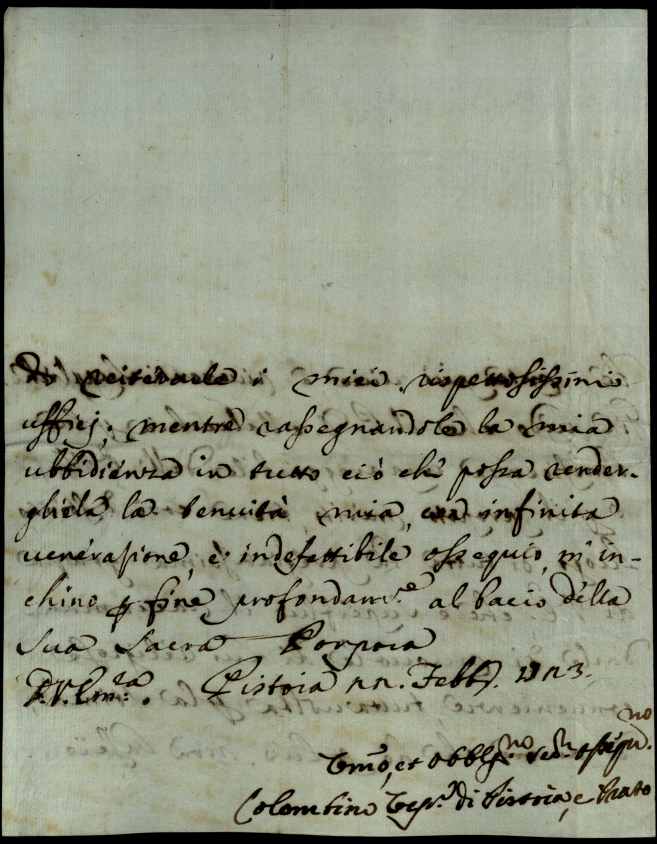 di reiterarle i miei rispettosissimi
ufficj; mentre rassegnandole la mia
ubbidienza in tutto ciò che possa render-
gliela la tenuità mia, con infinita
venerazione, e indefettibile ossequio, m'in-
chino p fine profondam.te al bacio della
Sua Sacra Porpora
D.V.Em.za. Pistoia 22. Febb.
Umo, et Obblig.no
Colombino di Pistoia, e Prato